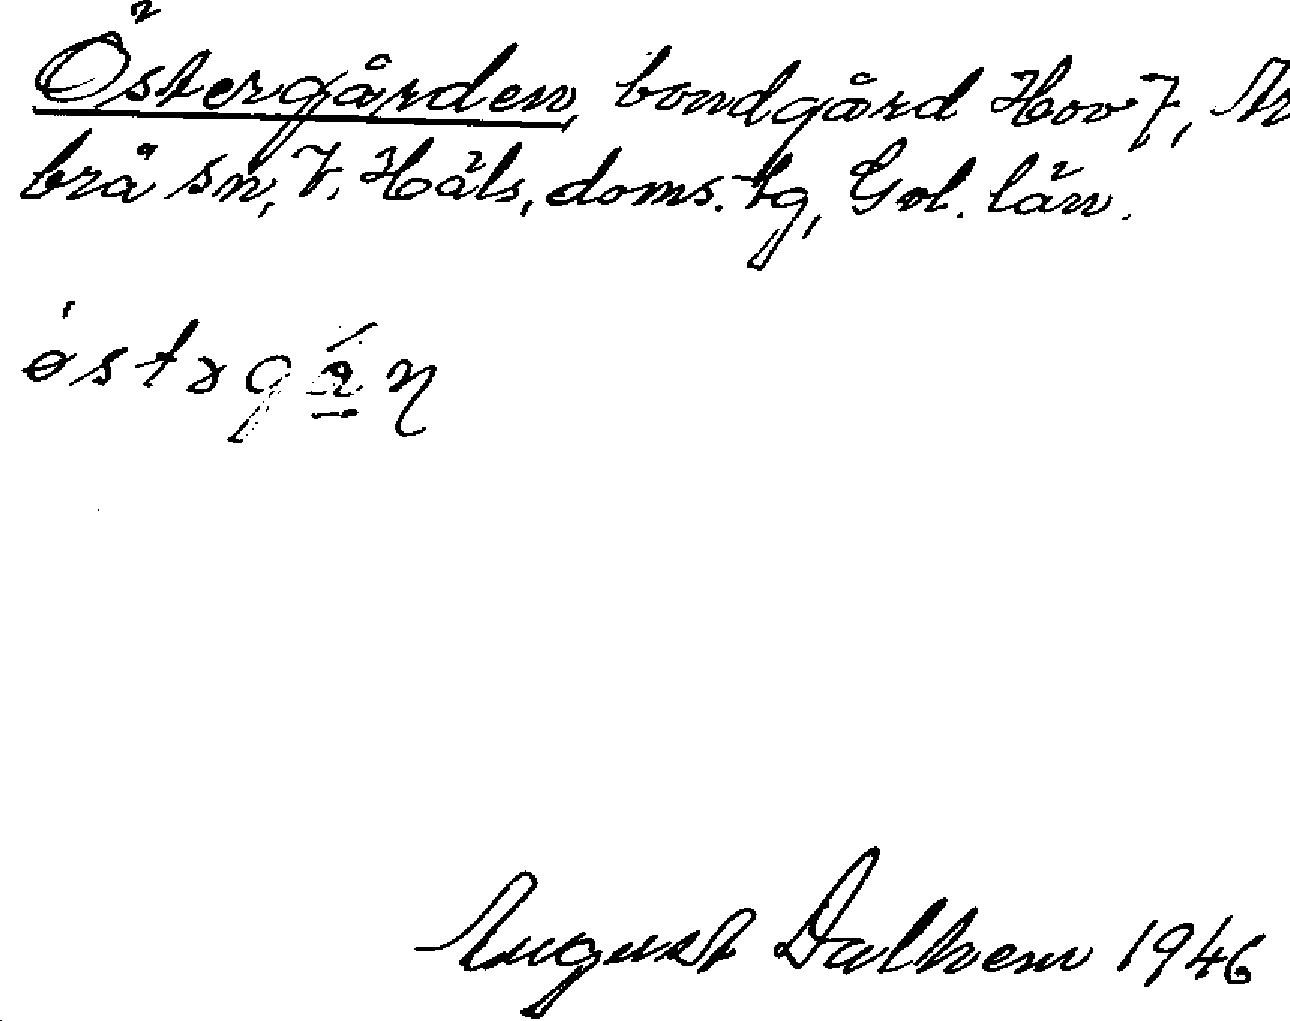 Östergården, bondgård Hov 7, Ar
brå sn, V. Häls, doms. tg, Gvl. län.
östəgɑ́ɳ
August Dalhem 1946